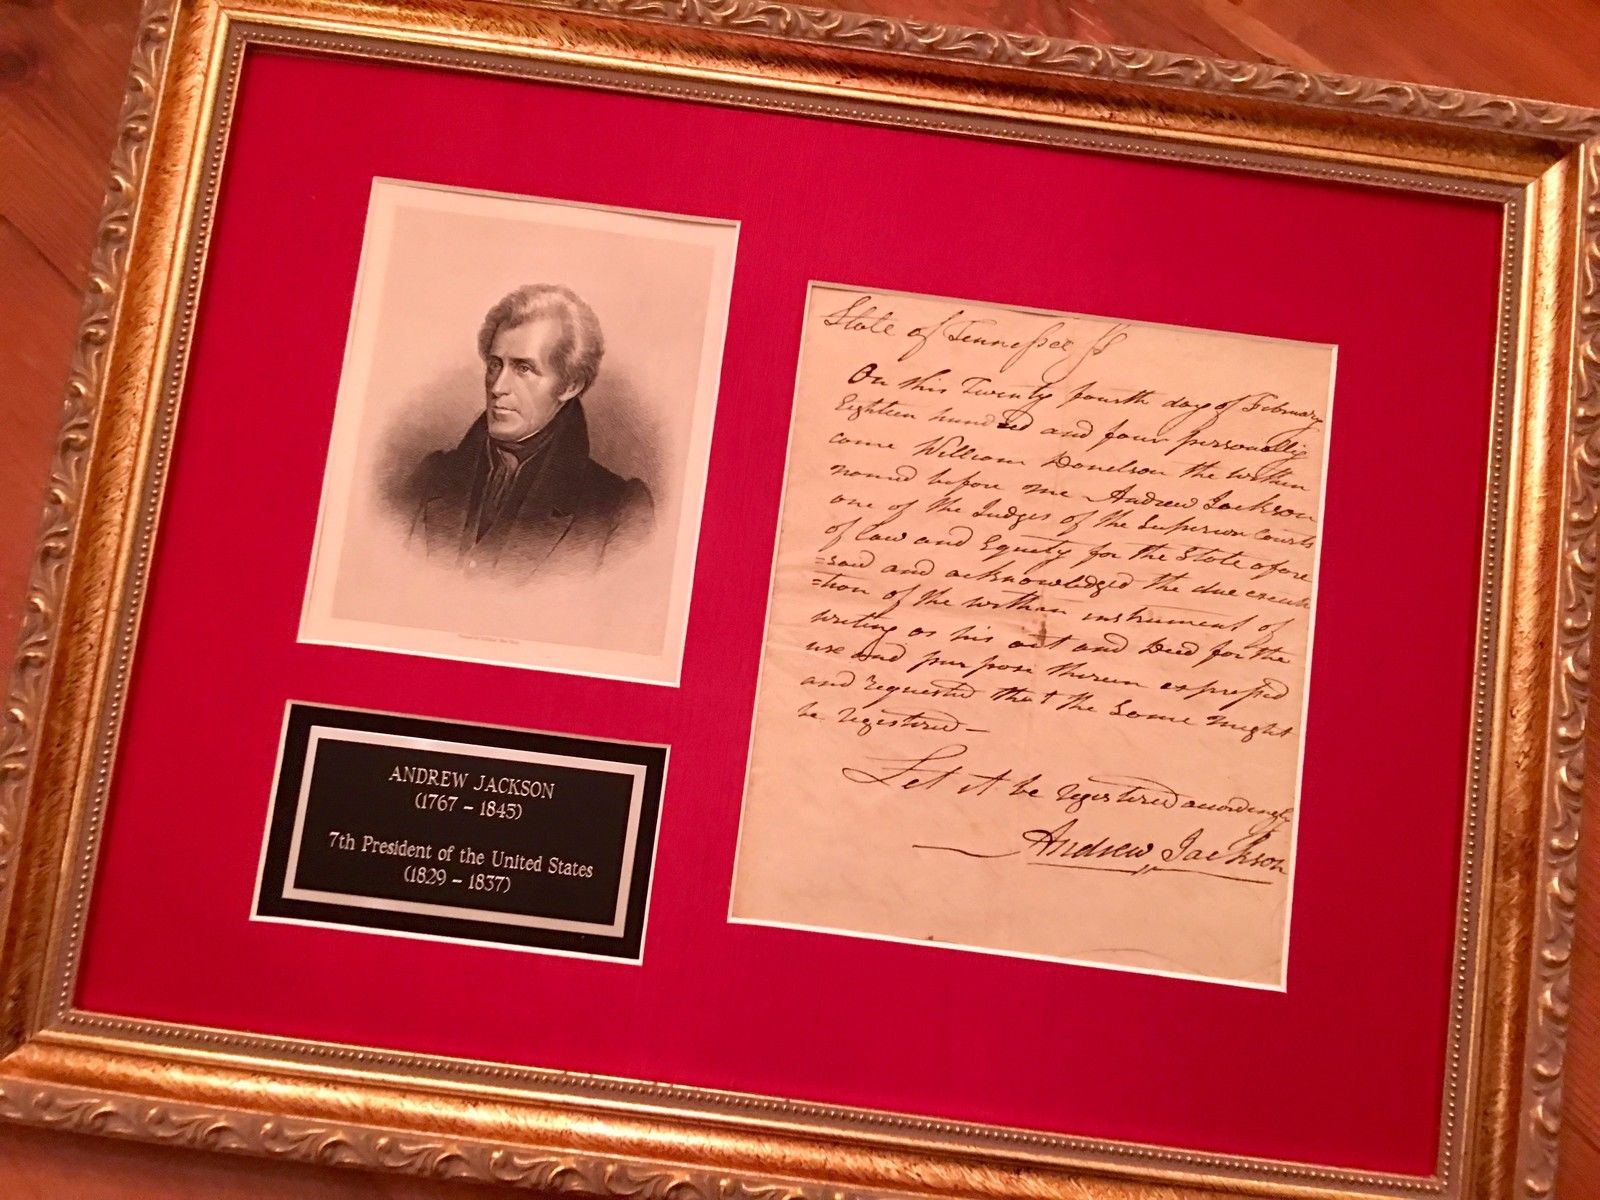 State of Tennessee Ss
On this Twenty fourth day of February
Eighteen hundred and four personally
came William Donelson the within
named before me Andrew Jackson
one of the Judges of the Superior Courts
of law and Equity for the State afore
=said and acknowledged the due execu
=tion of the within instrument of
writing as his act and Deed for the
use and purpose therein expressed
and requested that the same might
be registered—
Let it be registered accordingly
Andrew Jackson
ANDREW JACKSON
(1767 – 1845)
7th President of the United States
(1829 – 1837)